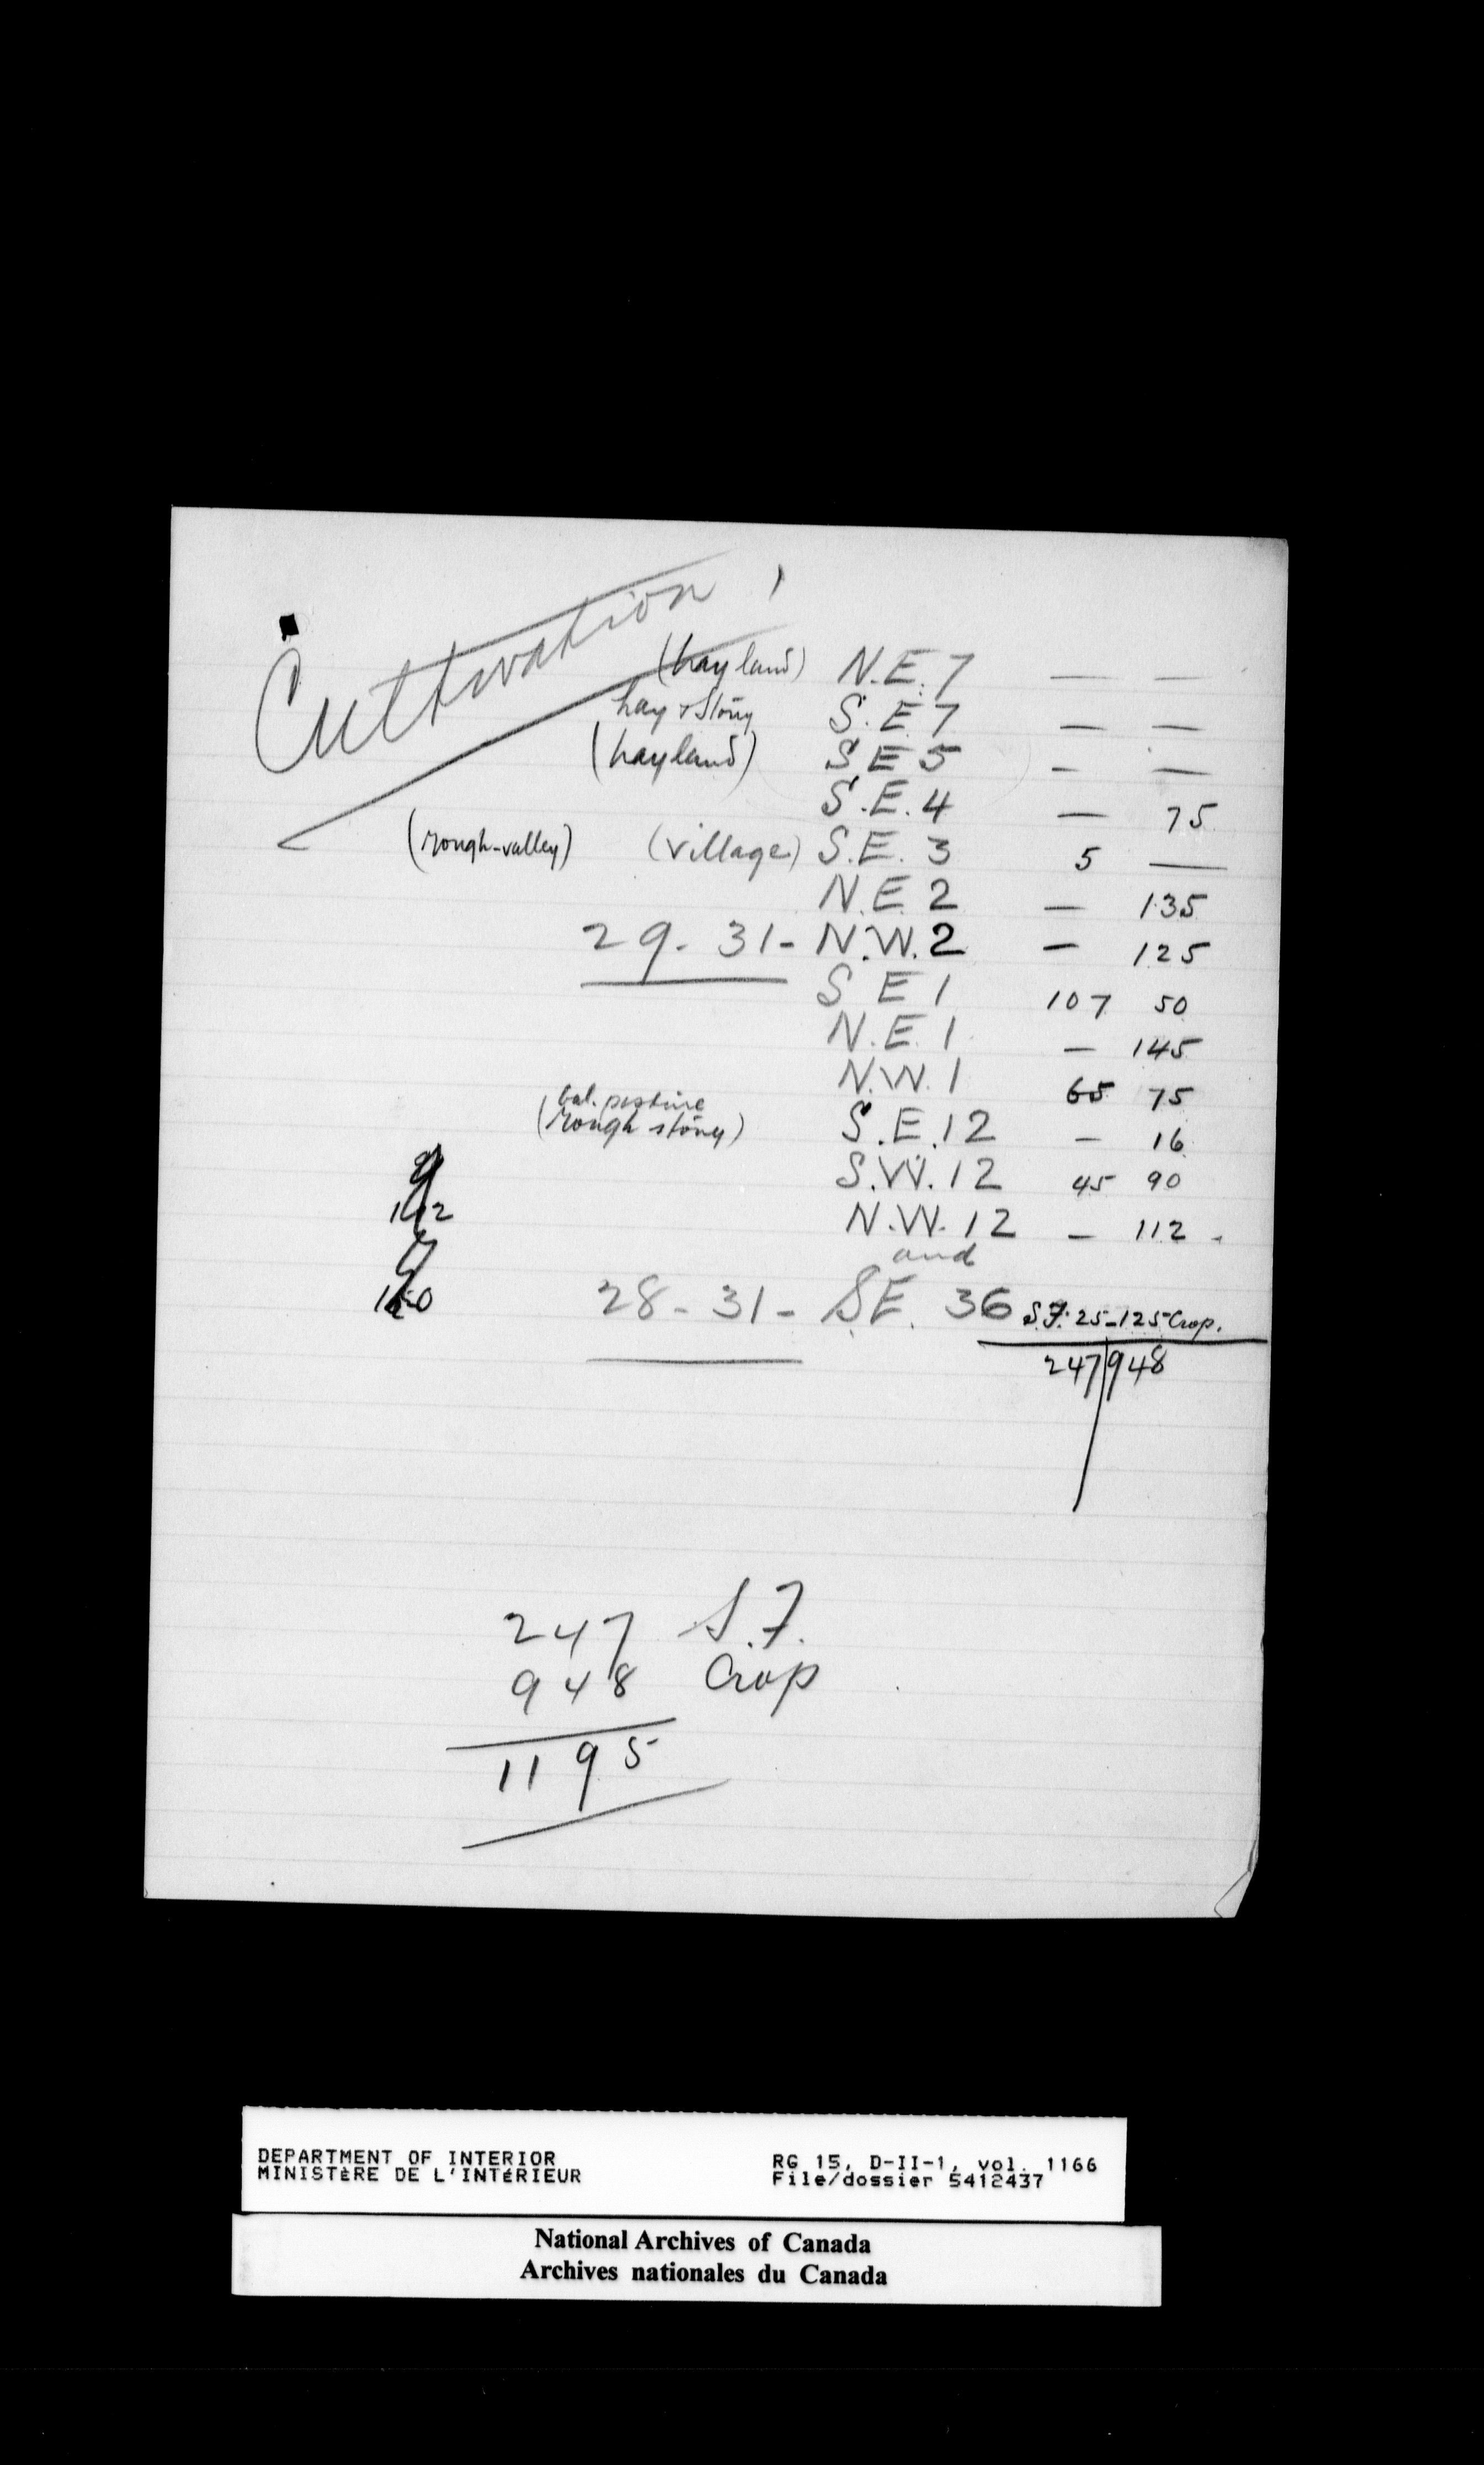 Cultivation
(hayland) N.E. 7 — —
hay & Stony S.E. 7 — —
(hayland) S E 5 — —
S.E. 4 — 75
(rough-valley) (village) S.E. 3 5 —
N.E. 2 — 135
29 - 31 - N.W. 2 — 125
S E 1 107 50
N.E. 1 — 145
N.W. 1 65 75
bal. pasture
(rough stony) S.E. 12 — 16
S.W. 12 45 90
N.W. 12 — 112
and
28 - 31 - S.E. 36 S.F. 25 - 125 Crop.
247 948
247 S.F.
948 Crop
1195
DEPARTMENT OF INTERIOR
MINISTÈRE DE L'INTÉRIEUR
RG 15, D-II-1, vol. 1166
File/dossier 5412437
National Archives of Canada
Archives nationales du Canada